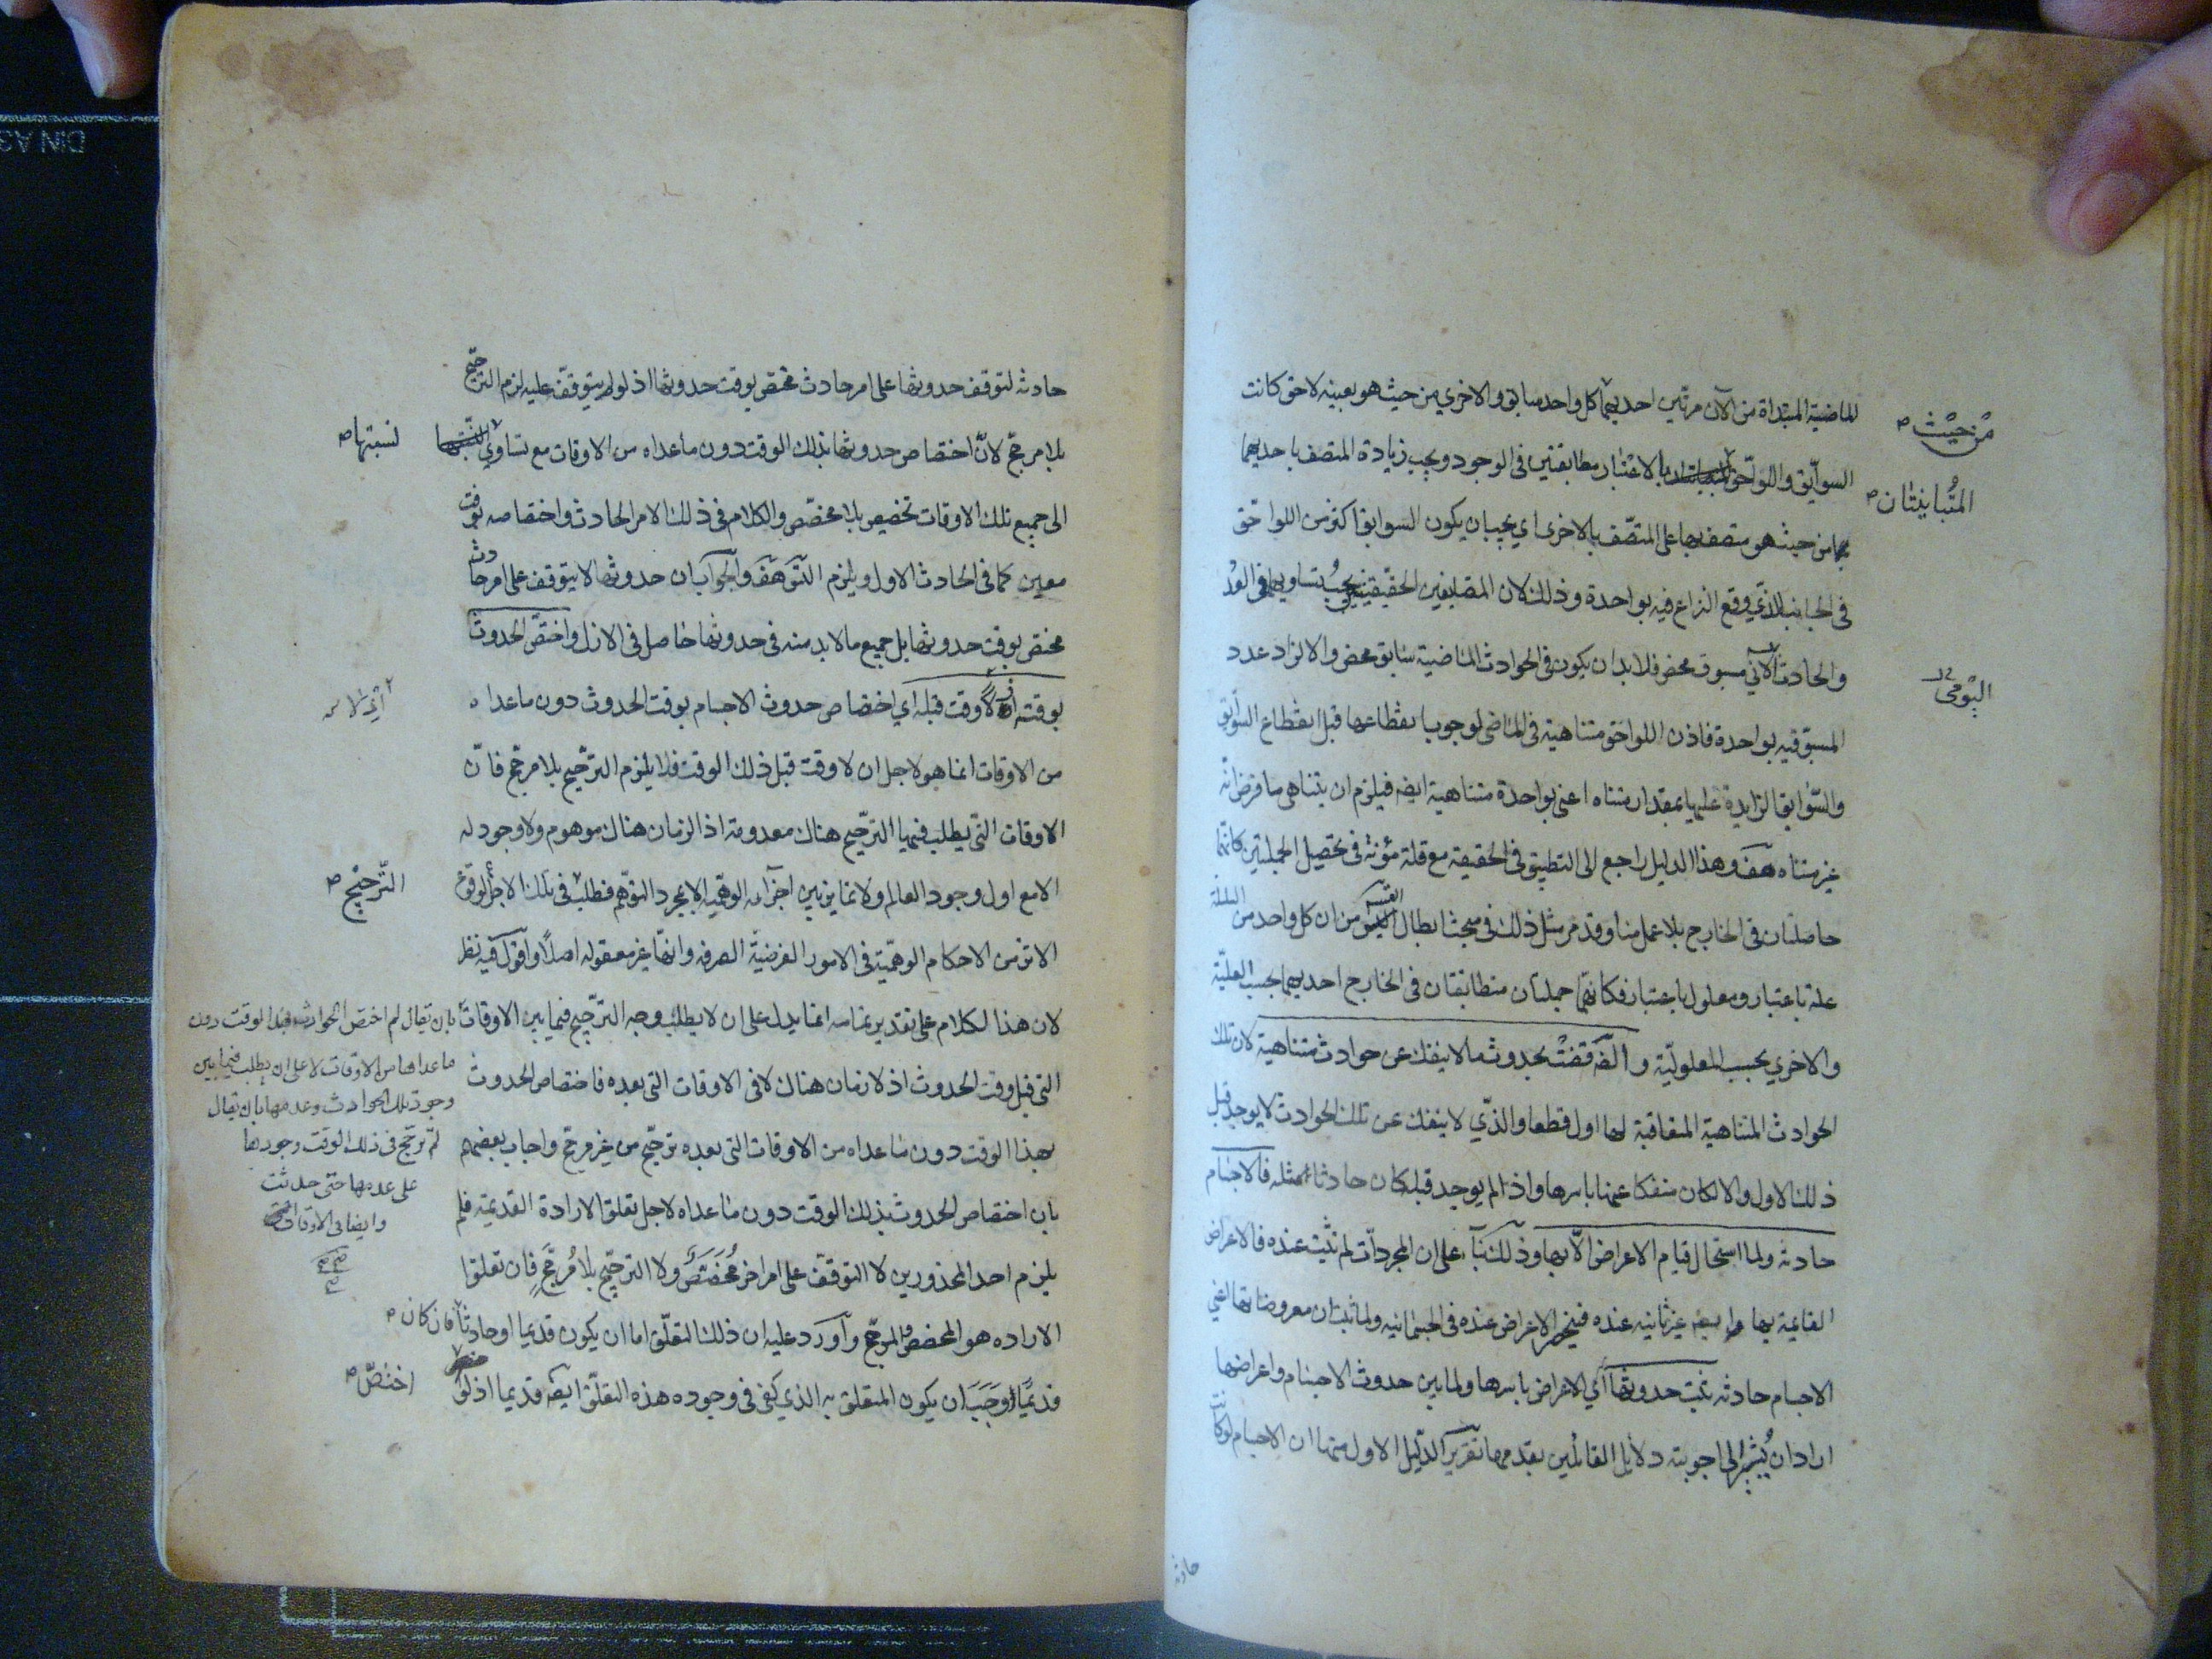 الماضية المبتداة من الآن مرتين احديهما كل واحد سابق والاخري من حيث هو بعينه لاحق كانت
من حيث
السوابق واللواحق بالاعتبار مطابقتين فى الوجود ويجب زيادة المتصف باحديهما
المتباينتان
من حيث هو متصف بها على المتصف بالاخرى اي يجب ان يكون السوابق اكثر من اللواحق
فى الجانب الذي وقع النزاع فيه بواحدة وذلك لان المتضايفين الحقيقيين يجب تساويهما فى العدد
والحادث مسبوق محض فلا بد ان يكون فى الحوادث الماضية سابق محض والا لزاد عدد
اليومى
المسبوقيه بواحدة فاذن اللواحق متناهية فى الماضى لوجوب انقطاعها قبل انقطاع السوابق
والسوابق الزايدة عليها بمقدار متناه اعنى بواحدة متناهية ايضه فيلزم ان يتناهى ما فرض انه
غير متناه هف وهذا الدليل راجع الى التطبيق فى الحقيقه مع قلة مؤنة فى تحصيل الجملتين كانهما
حاصلتان فى الخارج بلا عمل منا وقد مر مثل ذلك فى مبحث ابطال التس من ان كل واحد من السلسلة
علة باعتبار ومعلول باعتبار فكانهما جملتان متطابقتان فى الخارج احديهما بحسب العلية
والاخري بحسب المعلولية والضه قضت بحدوث ما لا ينفك عن حوادث متناهية لان تلك
الحوادث المتناهية المتعاقبة لها اول قطعا والذي لا ينفك عن تلك الحوادث لا يوجد قبل
ذلك الاول والا لكان منفكا عنها باسرها واذا لم يوجد قبله كان حادثا مثله فالاجسام
حادثه ولما استحال قيام الاعراض الا بها وذلك بناء على ان المجردات لم تثبت عنده فالاعراض
القايمة بها غير ثابته عنده فينحصر الاعراض عنده فى الجسمانيه ولما ثبت ان معروضاتها اعني
الاجسام حادثه ثبت حدوثها اي الاعراض باسرها ولما بين حدوث الاجسام واعراضها
اراد ان يشير الى اجوبته دلايل القائلين بقدمها تقرير الدليل الاول منها ان الاجسام لو كانت
حادثه
حادثه لتوقف حدوثها على امر حادث مختص بوقت حدوثها اذ لو لم يتوقف عليه لزم الترجيح
بلا مرجح لان اختصاص حدوثها بذلك الوقت دون ما عداه من الاوقات مع تساوي
نسبتها
الى جميع تلك الاوقات تخصيص بلا مخصص والكلام فى ذلك الامر الحادث واختصاصه بوقت
معين كما فى الحادث الاول ويلزم التس هف والجواب ان حدوثها لا يتوقف على امر حادث
مختص بوقت حدوثها بل جميع ما لا بد منه فى حدوثها حاصل فى الازل واختص الحدوث
بوقته اذ لا وقت قبله اي اختصاص حدوث الاجسام بوقت الحدوث دون ما عداه
من الاوقات انما هو لاجل ان لا وقت قبل ذلك الوقت فلا يلزم الترجيح بلا مرجح فان
الاوقات التى يطلب فيها الترجيح هناك معدومة اذ الزمان هناك موهوم ولا وجود له
الا مع اول وجود العالم ولا تمايز بين اجزائه الوهمية الا بمجرد التوهم فطلب فى تلك الاجزاء لوقوع
الترجيح
الا من الاحكام الوهمية فى الامور الفرضية الصرفه وانها غير معقوله اصلا واقول فيه نظر
لان هذا الكلام على تقدير تمامه انما يدل على ان لا يطلب وجه الترجيح فيما بين الاوقات
بان يقال لم اختص الحوادث بهذا الوقت دون
ما عداها من الاوقات لا على ان يطلب فيما بين
وجود تلك الحوادث وعدمها بان يقال
لم ترجح فى ذلك الوقت وجودها
على عدمها حتى حدثت
وايضا فى الاوقات
التى قبل وقت الحدوث اذ لا زمان هناك لا فى الاوقات التى بعده فاختصاص الحدوث
بهذا الوقت دون ما عداه من الاوقات التى بعده ترجيح من غير مرجح واجاب بعضهم
بان اختصاص الحدوث بذلك الوقت دون ما عداه لاجل تعلق الارادة القديمة فلم
يلزم احد المحذورين لا التوقف على امر اخر مختص ولا الترجيح بلا مرجح فان تعلق
الاراده هو المخصص والمرجح وأورد عليه ان ذلك التعلق اما ان يكون قديما او حادثا فان كان
قديما وجب ان يكون المتعلق به الذي كفى فى وجوده هذه التعلق ايضه قديما اذ لو
اختص